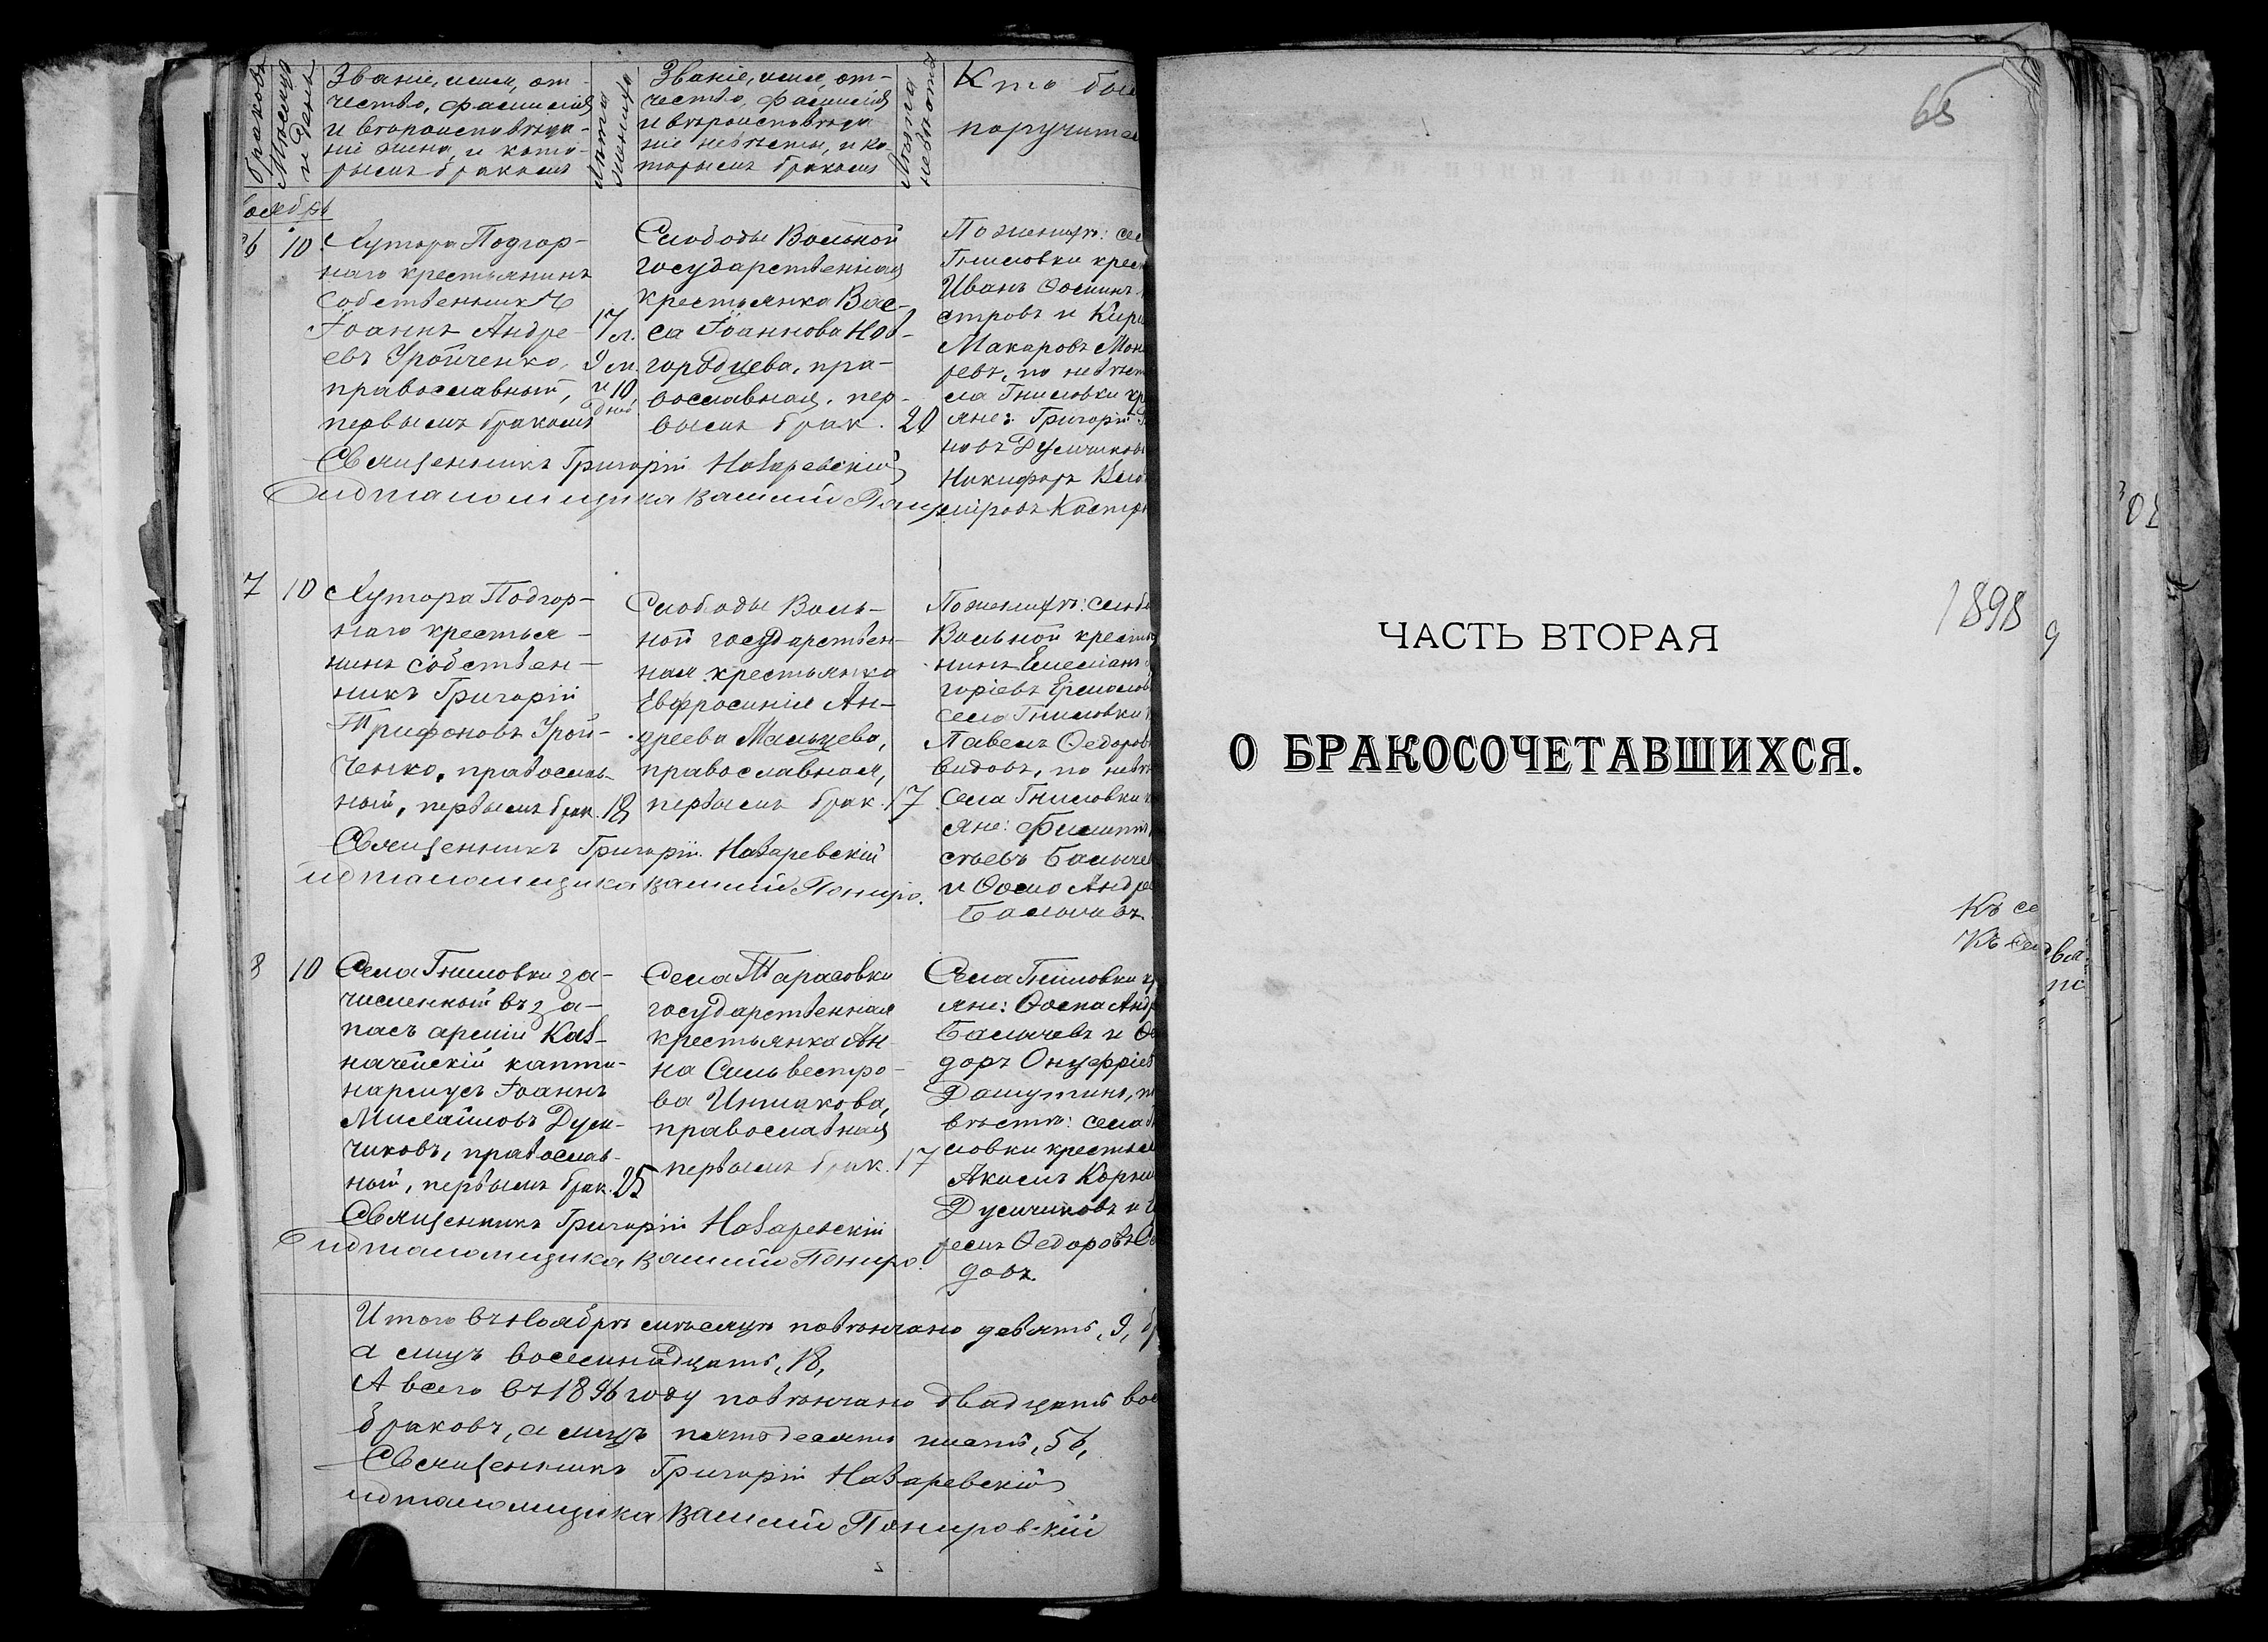 браковъ
Мѣсяцъ
и день
Званіе, имя, от-
чество, фамилія
и вѣроисповѣда-
ніе жениха, и кото-
рымъ бракомъ
Лѣта
жениха
Званіе, имя, от-
чество, фамилія
и вѣроисповѣда
ніе невѣсты, и ко-
торымъ бракомъ
Лѣта
невѣсты
Кто
поручител
оября
10
Хутора Подгор-
наго крестьянинъ
собственникъ
Іоаннъ Андре-
евъ Уройченко,
православный,
первымъ бракомъ
17 л.
9 м.
и 10
дней
Слободы Вольной
государственная
крестьянка Вас-
са Іоаннова Нов-
городцева, пра-
вославная, пер-
вымъ брак.
20
По женихѣ: сел
Гниловки крест
Иванъ Ѳоминъ
стровъ и Кири
Макаровъ
ревъ, по невѣст
ла Гниловки кр
яне: Григорій
новъ Думчиковъ
Никифоръ
міровъ
Священникъ Григорій Назаревскій
7
10
Хутора Подгор-
наго крестья-
нинъ собствен-
никъ Григорій
Трифоновъ Урой-
ченко, православ-
ный, первымъ брак.
18
Слободы Воль-
ной государствен-
ная крестьянка
Евфросинія Ан-
дреева Мальцева,
православная,
первымъ брак.
17
По женихѣ: слобо
Вольной крестья
нинъ Емельянъ
горіевъ Ермолов
села Гниловки
Павелъ Ѳедоровъ
видовъ, по невѣ
села Гниловки к
яне: Филиппъ
и Ѳома Андре
Балычевъ
Священникъ Григорій Назаревскій
8
10
Села Гниловки за-
численный въ за-
пасъ арміи Каз-
начейскій капте-
нармусъ Іоаннъ
Михайловъ Дум-
чиковъ, православ-
ный, первымъ брак.
25
Села Тарасовки
государственная
крестьянка Ан-
на Сильвестро-
ва Иншакова,
православная
первымъ брак.
17
Села Гниловки кр
яне: Ѳома Андр
Балычевъ и Ѳе
доръ Онуфріев
Дашутинъ, п
вѣстѣ: села
ловки крестья
Акимъ Корни
Думчиковъ и
ремъ Ѳедоровъ
довъ.
Священникъ Григорій Назаревскій
Итого въ Ноябрѣ мѣсяцѣ повѣнчано девять, 9,
а лицъ восемнадцать, 18,
А всего въ 1896 году повѣнчано двадцать вос
браковъ, а лицъ пятьдесятъ шесть, 56,
Священникъ Григорій Назаревскій
1898
ЧАСТЬ ВТОРАЯ
О БРАКОСОЧЕТАВШИХСЯ.
Къ се